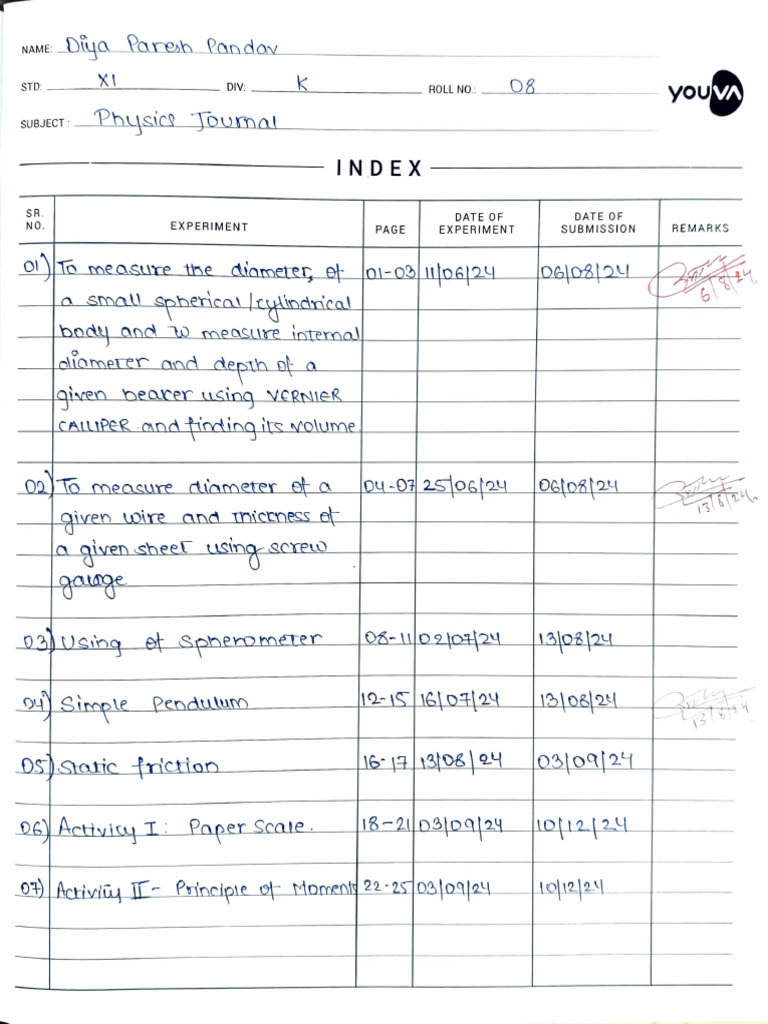 NAME: Diya Paresh Pandav
STD: XI DIV: K ROLL NO.: 08
YOUVA
SUBJECT: Physics Journal
INDEX
SR. NO. EXPERIMENT PAGE DATE OF EXPERIMENT DATE OF SUBMISSION REMARKS
01) To measure the diameter, of 01-03 11/06/24 06/08/24 6/8/24.
a small spherical/cylindrical
body and to measure internal
diameter and depth of a
given beaker using VERNIER
CALLIPER and finding its volume
02) To measure diameter of a 04-07 25/06/24 06/08/24 13/8/24.
given wire and thickness of
a given sheet using screw
gauge
03) Using of Spherometer 08-11 02/07/24 13/08/24
04) Simple Pendulum 12-15 16/07/24 13/08/24 13/8/24
05) Static friction 16-17 13/08/24 03/09/24
06) Activity I: Paper Scale. 18-21 03/09/24 10/12/24
07) Activity II - Principle of Moments 22-25 03/09/24 10/12/24